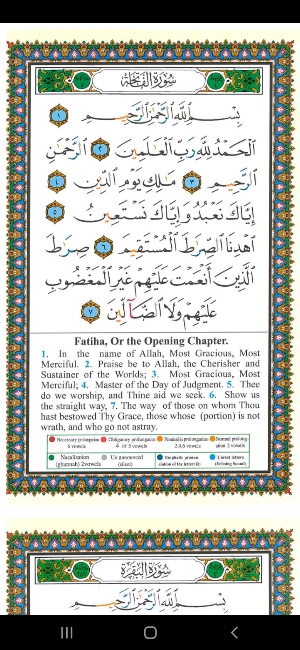 سُورَةُ الفَاتِحَةِ
بِسْمِ اللَّهِ الرَّحْمَٰنِ الرَّحِيمِ ١
الْحَمْدُ لِلَّهِ رَبِّ الْعَالَمِينَ ٢ الرَّحْمَٰنِ
الرَّحِيمِ ٣ مَالِكِ يَوْمِ الدِّينِ ٤
إِيَّاكَ نَعْبُدُ وَإِيَّاكَ نَسْتَعِينُ ٥
اهْدِنَا الصِّرَاطَ الْمُسْتَقِيمَ ٦ صِرَاطَ
الَّذِينَ أَنْعَمْتَ عَلَيْهِمْ غَيْرِ الْمَغْضُوبِ
عَلَيْهِمْ وَلَا الضَّالِّينَ ٧
Fatiha, Or the Opening Chapter.
1. In the name of Allah, Most Gracious, Most
Merciful. 2. Praise be to Allah, the Cherisher and
Sustainer of the Worlds; 3. Most Gracious, Most
Merciful; 4. Master of the Day of Judgment. 5. Thee
do we worship, and Thine aid we seek. 6. Show us
the straight way, 7. The way of those on whom Thou
hast bestowed Thy Grace, those whose (portion) is not
wrath, and who go not astray.
Necessary prolongation 6 vowels
Obligatory prolongation 4 or 5 vowels
Permissible prolongation 2,4,6 vowels
Normal prolongation 2 vowels
Nazalization (ghunnah) 2vowels
Un announced (silent)
Emphatic pronunciation of the letter (R)
Unrest letters (Echoing Sound)
سُورَةُ البَقَرَةِ
بِسْمِ اللَّهِ الرَّحْمَٰنِ الرَّحِيمِ